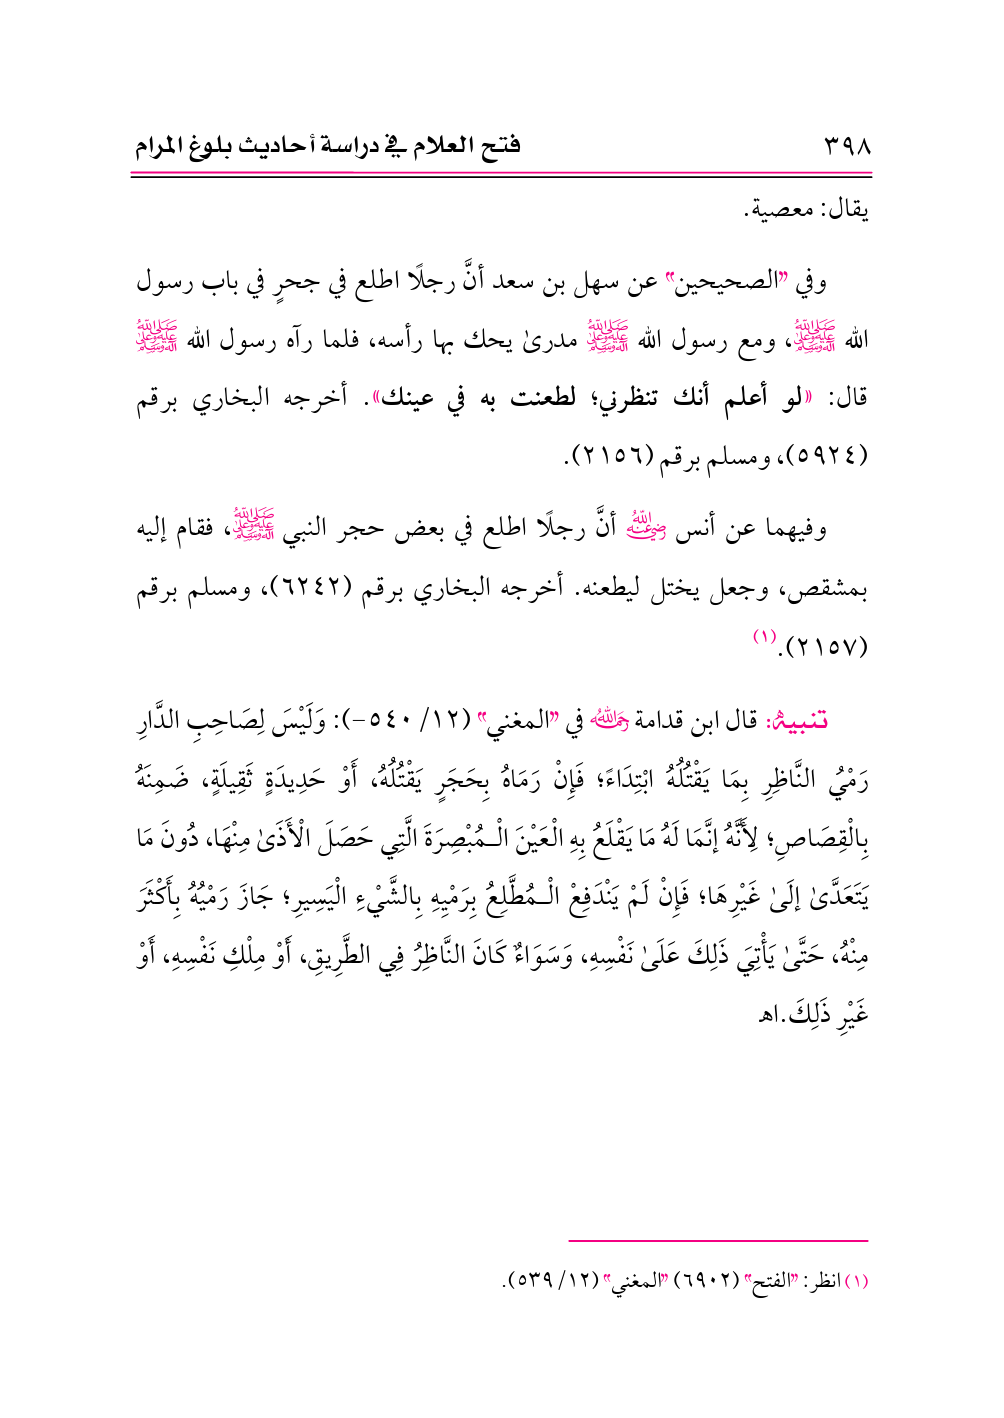 ٣٩٨ فتح العلام في دراسة أحاديث بلوغ المرام
يقال: معصية.
وفي "الصحيحين" عن سهل بن سعد أنَّ رجلًا اطلع في جحرٍ في باب رسول
الله ﷺ، ومع رسول الله ﷺ مدرىٰ يحك بها رأسه، فلما رآه رسول الله ﷺ
قال: «لو أعلم أنك تنظرني؛ لطعنت به في عينك». أخرجه البخاري برقم
(٥٩٢٤)، ومسلم برقم (٢١٥٦).
وفيهما عن أنس رضي الله عنه أنَّ رجلًا اطلع في بعض حجر النبي ﷺ، فقام إليه
بمشقص، وجعل يختل ليطعنه. أخرجه البخاري برقم (٦٢٤٢)، ومسلم برقم
(٢١٥٧).(١)
تنبيه: قال ابن قدامة رحمه الله في "المغني" (١٢/ ٥٤٠-): وَلَيْسَ لِصَاحِبِ الدَّارِ
رَمْيُ النَّاظِرِ بِمَا يَقْتُلُهُ ابْتِدَاءً؛ فَإِنْ رَمَاهُ بِحَجَرٍ يَقْتُلُهُ، أَوْ حَدِيدَةٍ ثَقِيلَةٍ، ضَمِنَهُ
بِالْقِصَاصِ؛ لِأَنَّهُ إنَّمَا لَهُ مَا يَقْلَعُ بِهِ الْعَيْنَ الْـمُبْصِرَةَ الَّتِي حَصَلَ الْأَذَىٰ مِنْهَا، دُونَ مَا
يَتَعَدَّىٰ إلَىٰ غَيْرِهَا؛ فَإِنْ لَمْ يَنْدَفِعْ الْـمُطَّلِعُ بِرَمْيِهِ بِالشَّيْءِ الْيَسِيرِ؛ جَازَ رَمْيُهُ بِأَكْثَرَ
مِنْهُ، حَتَّىٰ يَأْتِيَ ذَلِكَ عَلَىٰ نَفْسِهِ، وَسَوَاءٌ كَانَ النَّاظِرُ فِي الطَّرِيقِ، أَوْ مِلْكِ نَفْسِهِ، أَوْ
غَيْرِ ذَلِكَ.اهـ
(١) انظر: "الفتح" (٦٩٠٢) "المغني" (١٢/ ٥٣٩).